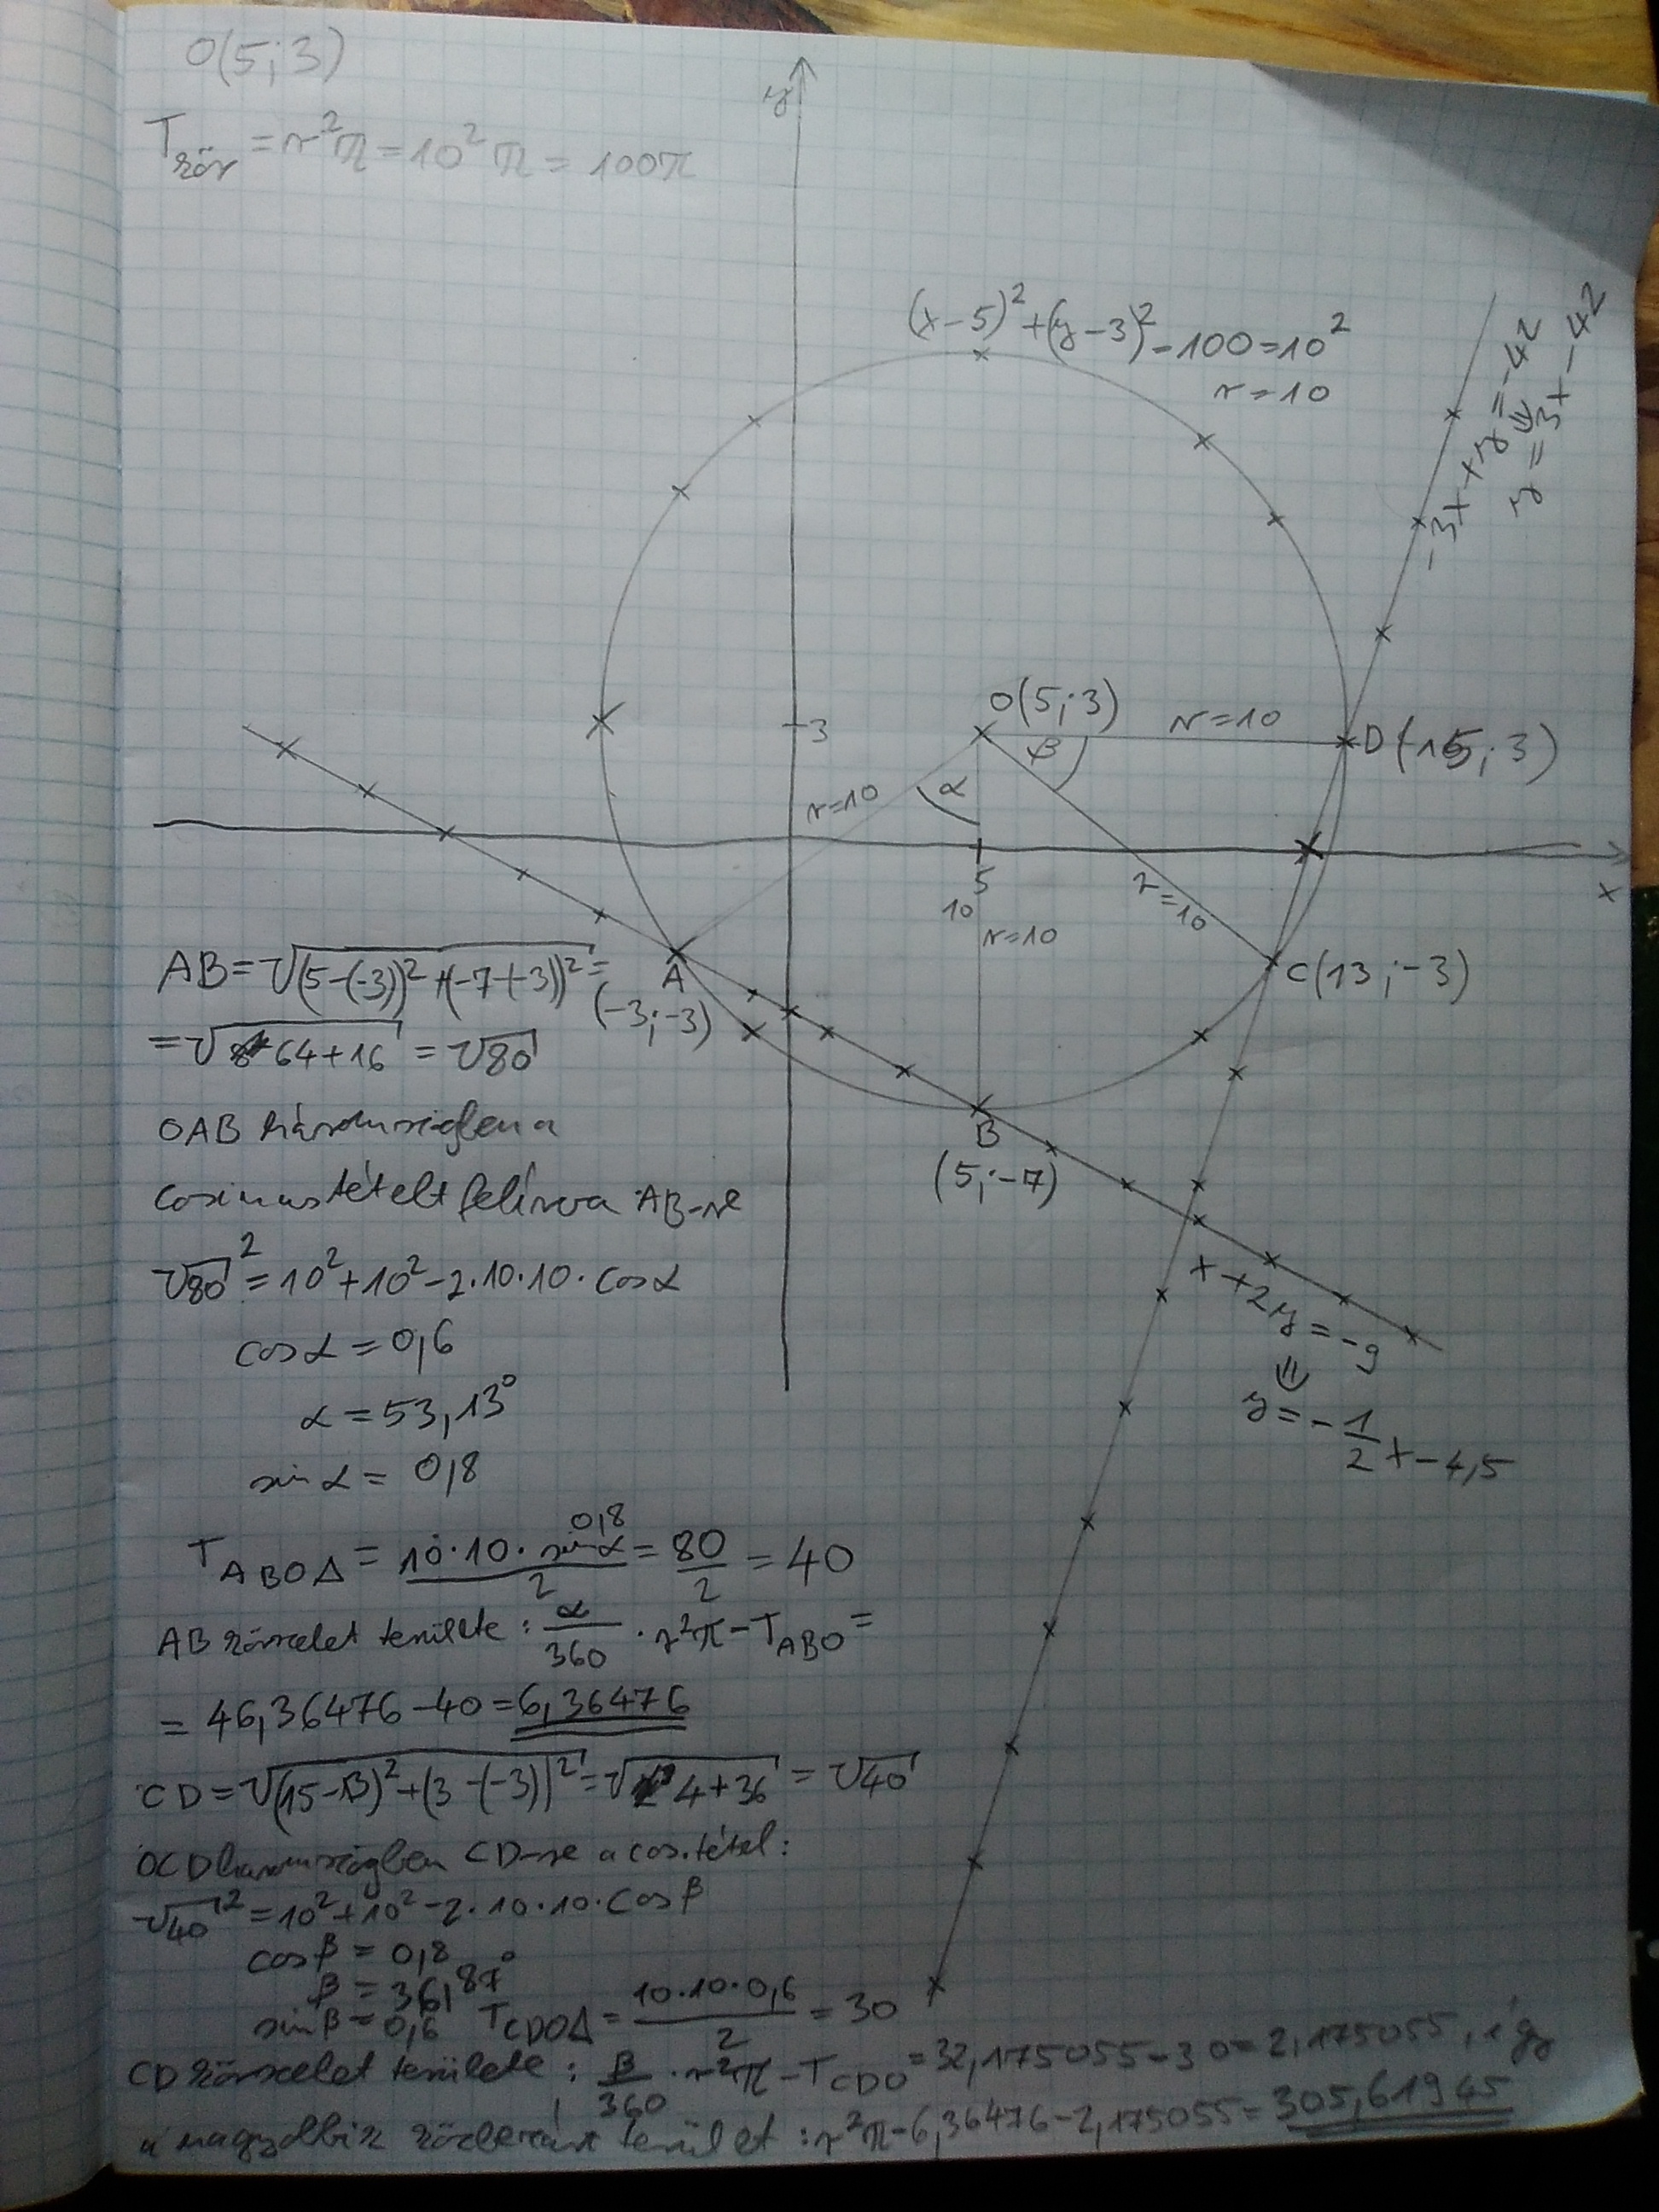 O(5;3)
T kör = r²π = 10²π = 100π
y
(x-5)²+(y-3)²=100=10²
r=10
-3x+y=-42
⇓
y=3x-42
O(5;3)
r=10
3
β
D(15;3)
α
r=10
5
10
r=10
r=10
x
A
(-3;-3)
C(13;-3)
B
(5;-7)
x+2y=-9
⇓
y=-1/2x-4,5
AB=√(5-(-3))²+(-7-(-3))²=
=√64+16=√80
OAB háromszögben a
cosinustételt felírva AB-re
√80²=10²+10²-2·10·10·cosα
cosα=0,6
α=53,13°
sinα=0,8
0,8
T ABOΔ = 10·10·sinα/2 = 80/2 = 40
AB körszelet területe: α/360·r²π-T ABO=
=46,36476-40=6,36476
CD=√(15-13)²+(3-(-3))²=√4+36=√40
OCD háromszögben CD-re a cos.tétel:
√40²=10²+10²-2·10·10·cosβ
cosβ=0,8
β=36,87°
sinβ=0,6 T CDOΔ=10·10·0,6/2=30
CD körszelet területe: β/360·r²π-T CDO=32,175055-30=2,175055, így
a nagyobbik terület: r²π-6,36476-2,175055=305,61945